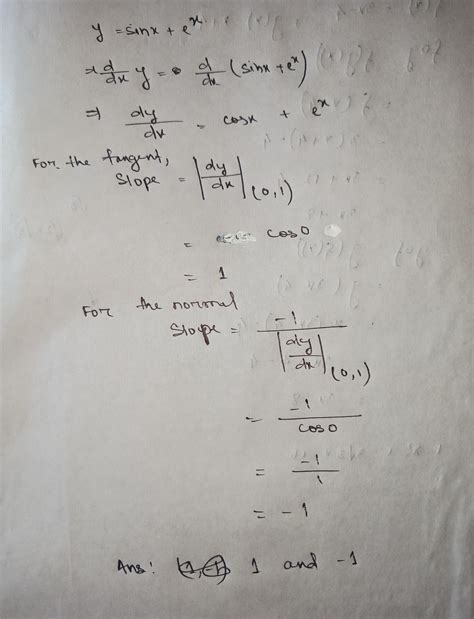 y = sinx + e^x
⇒ d/dx y = d/dx (sinx + e^x)
⇒ dy/dx = cosx + e^x
For the tangent,
slope = |dy/dx|(0,1)
= cos0
= 1
For the normal
Slope = -1/|dy/dx|(0,1)
= -1/cos0
= -1/1
= -1
Ans: 1 and -1